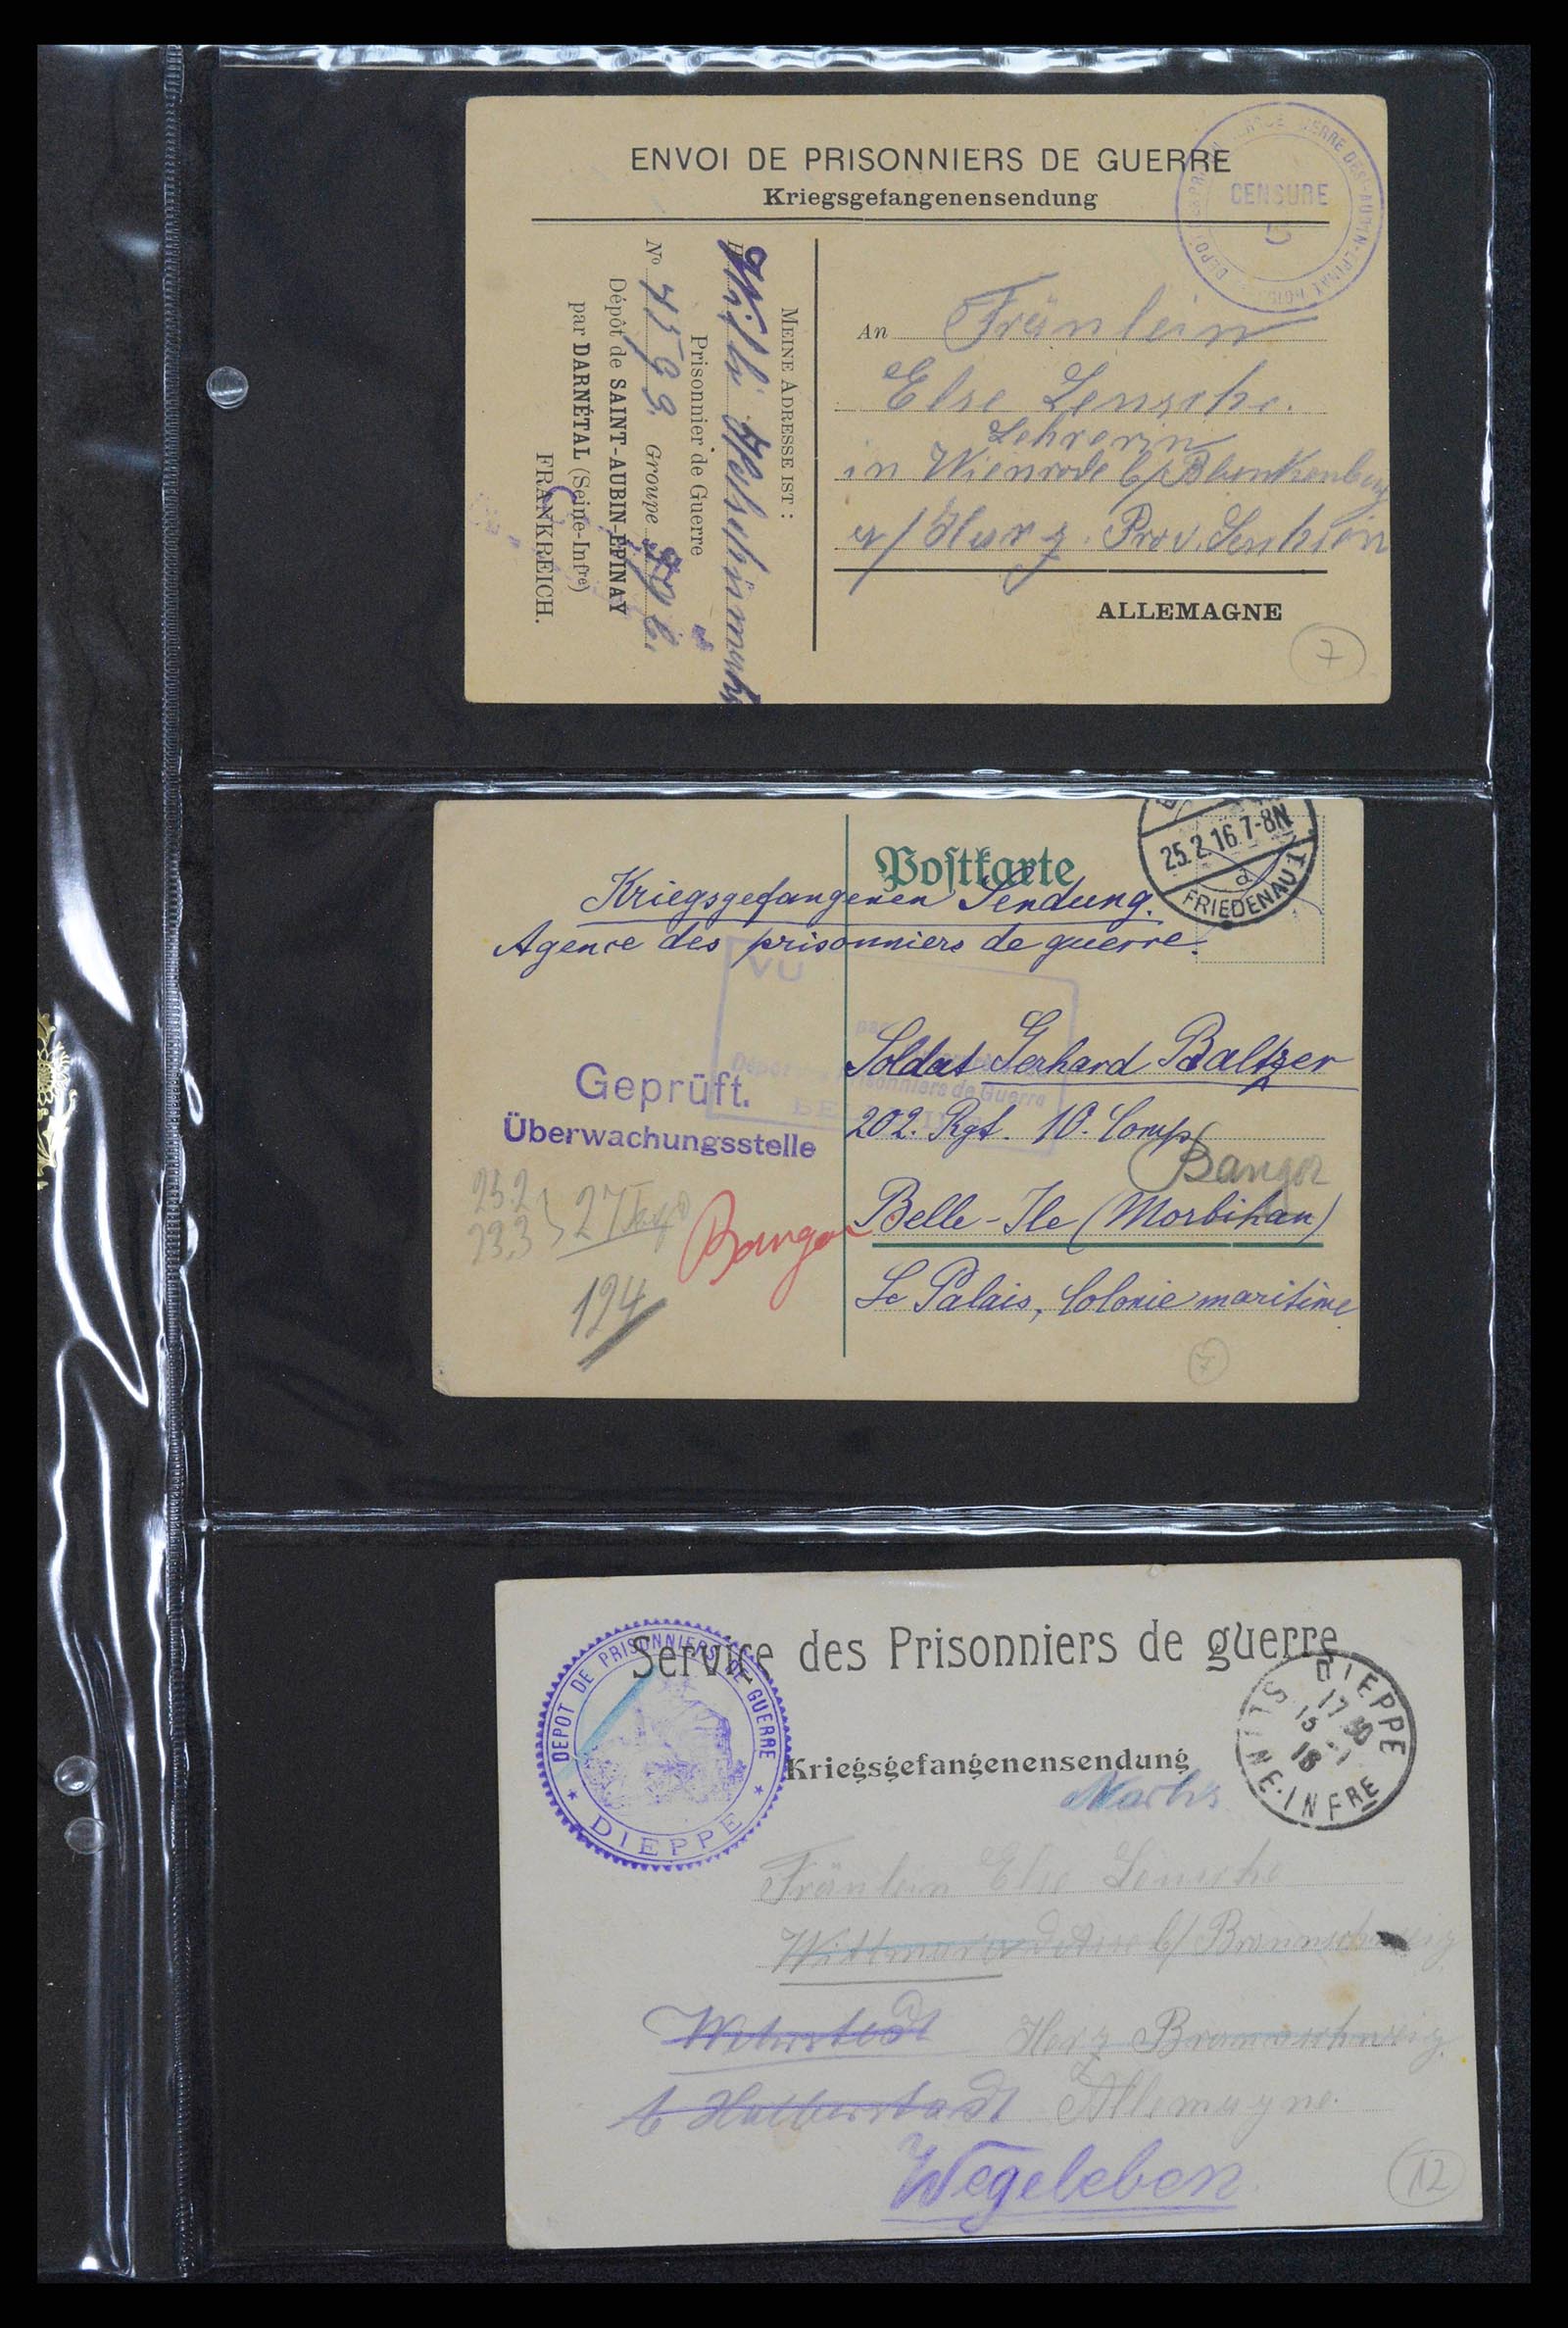 ENVOI DE PRISONNIERS DE GUERRE
Kriegsgefangenensendung
CENSURE
5
MEINE ADRESSE IST :
Willi
Prisonnier de Guerre
No 4599. Groupe
Dépôt de SAINT-AUBIN-EPINAY
par DARNÉTAL (Seine-Infre)
FRANKREICH.
An Fräulein
Else Lensche.
Lehrerin
in Wienrode b/Blankenburg
a/Harz. Prov. Sachsen
ALLEMAGNE
7
Postkarte
25.2.16.7-8N
d
FRIEDENAU 1.
Kriegsgefangenen Sendung.
Agence des prisonniers de guerre.
VU
par
Dépôt Prisonniers de Guerre
Geprüft.
Überwachungsstelle
Soldat Gerhard Baltzer
202. Rgt. 10. Comp
Bangor
Belle-Ile (Morbihan)
Le Palais, Colonie maritime
23.2
23.3 } 27 Tage
Bangor
124
7
Service des Prisonniers de guerre
DEPOT DE PRISONNIERS DE GUERRE
* DIEPPE *
Kriegsgefangenensendung
DIEPPE
17 30
15 -1
16
SEINE-INFRE
Fräulein Else Lensche
Wittmar b/ Braunschweig
Harz Braunschweig.
b Halberstadt Allemagne.
Wegeleben
12